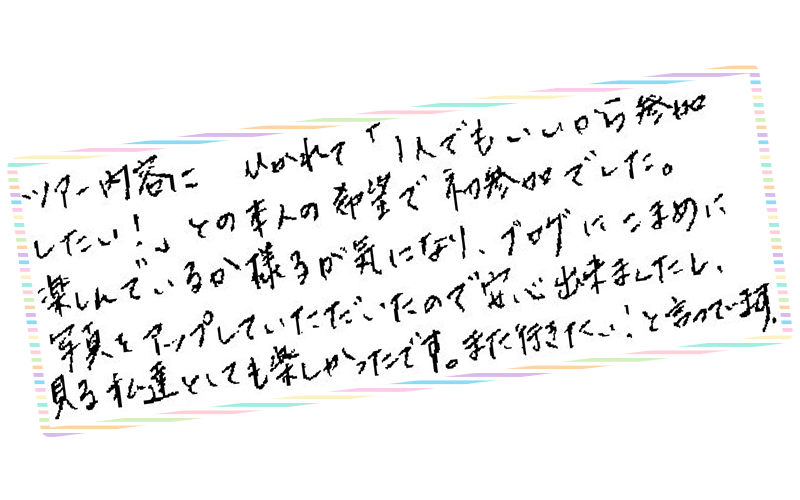 ツアー内容に ひかれて「1人でもいいから参加
したい！」との本人の希望で初参加でした。
楽しんでいるか様子が気になり、ブログにこまめに
写真をアップしていただいたので安心出来ましたし、
見る私達としても楽しかったです。また行きたい！と言ってます。